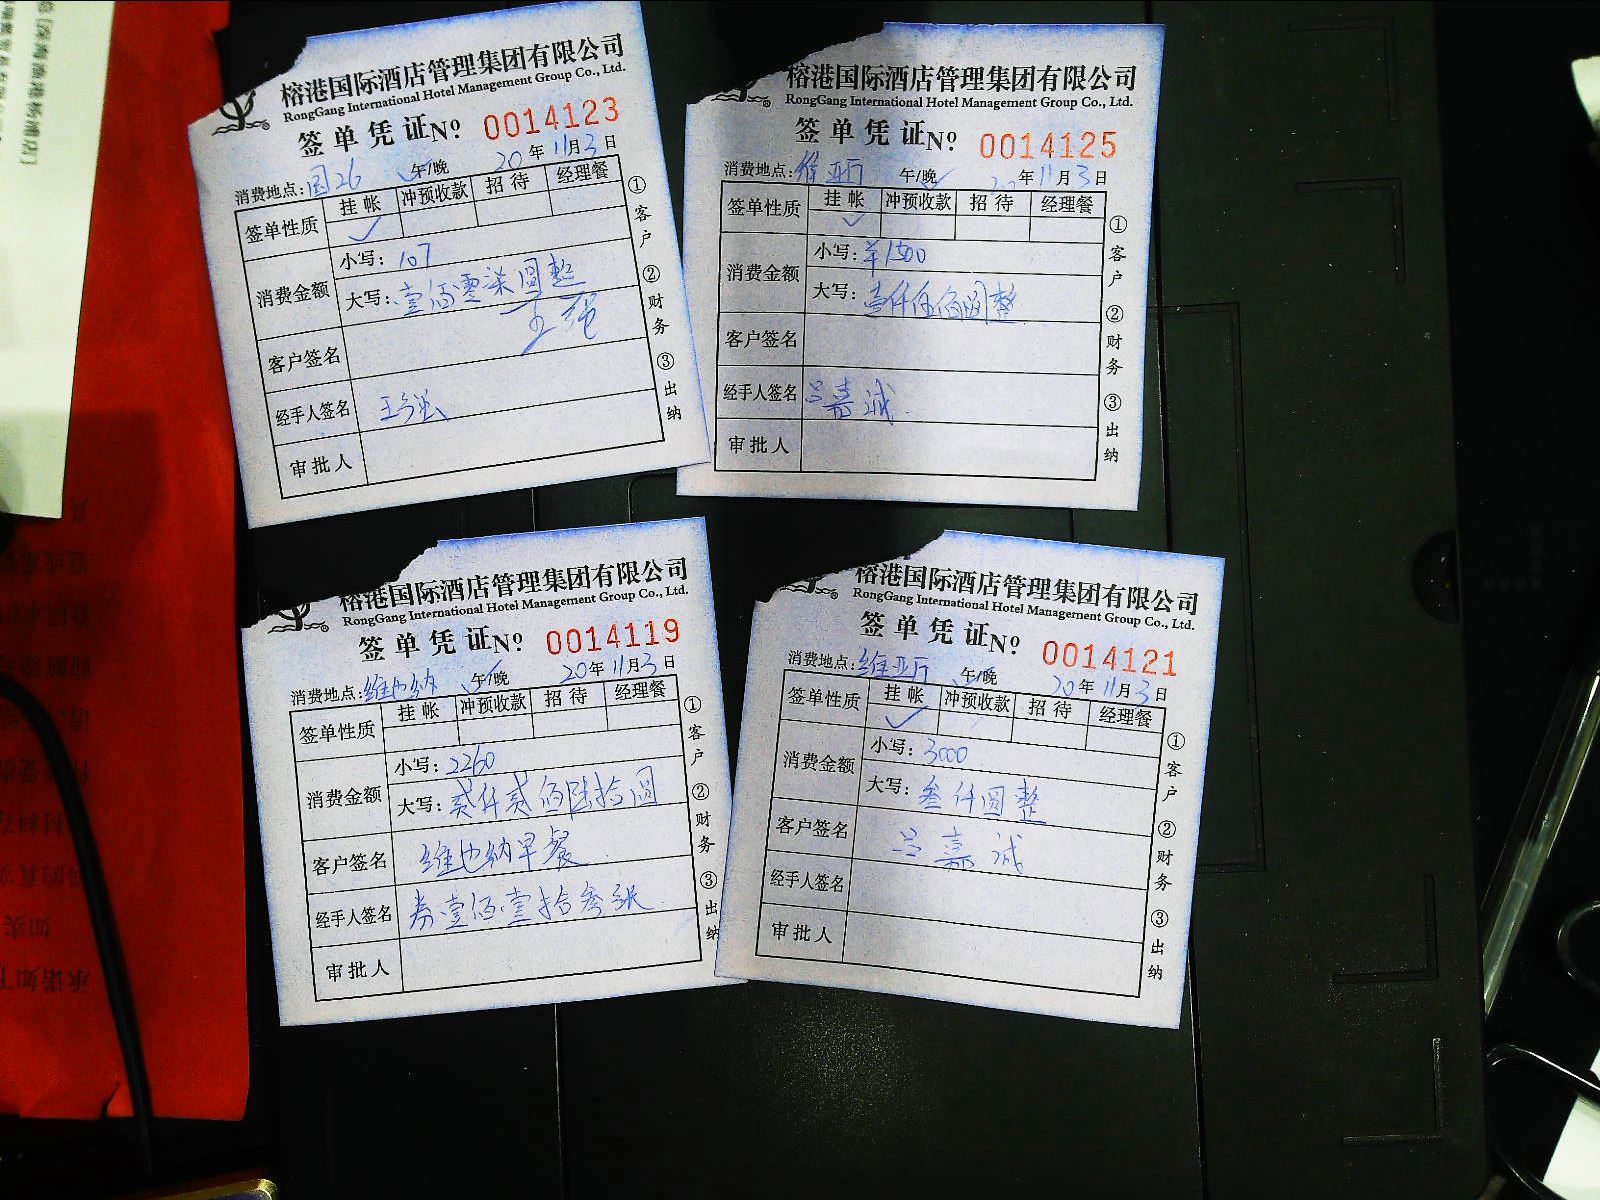 榕港国际酒店管理集团有限公司
RongGang International Hotel Management Group Co., Ltd.
签单凭证 No 0014123
消费地点: 国26 午/晚 20年11月3日
签单性质 挂帐 冲预收款 招待 经理餐
消费金额 小写: 107
大写: 壹佰零柒圆整
王强
客户签名
经手人签名 王强
审批人
①客户 ②财务 ③出纳
榕港国际酒店管理集团有限公司
RongGang International Hotel Management Group Co., Ltd.
签单凭证 No 0014125
消费地点: 维亚厅 午/晚 年11月3日
签单性质 挂帐 冲预收款 招待 经理餐
消费金额 小写: ¥1500
大写: 壹仟伍佰圆整
客户签名
经手人签名 吕嘉诚
审批人
①客户 ②财务 ③出纳
榕港国际酒店管理集团有限公司
RongGang International Hotel Management Group Co., Ltd.
签单凭证 No 0014119
消费地点: 维也纳 午/晚 20年11月3日
签单性质 挂帐 冲预收款 招待 经理餐
消费金额 小写: 2260
大写: 贰仟贰佰陆拾圆
客户签名 维也纳早餐
经手人签名 券壹佰壹拾叁张
审批人
①客户 ②财务 ③出纳
榕港国际酒店管理集团有限公司
RongGang International Hotel Management Group Co., Ltd.
签单凭证 No 0014121
消费地点: 维亚厅 午/晚 20年11月3日
签单性质 挂帐 冲预收款 招待 经理餐
消费金额 小写: 3000
大写: 叁仟圆整
客户签名 吕嘉诚
经手人签名
审批人
①客户 ②财务 ③出纳